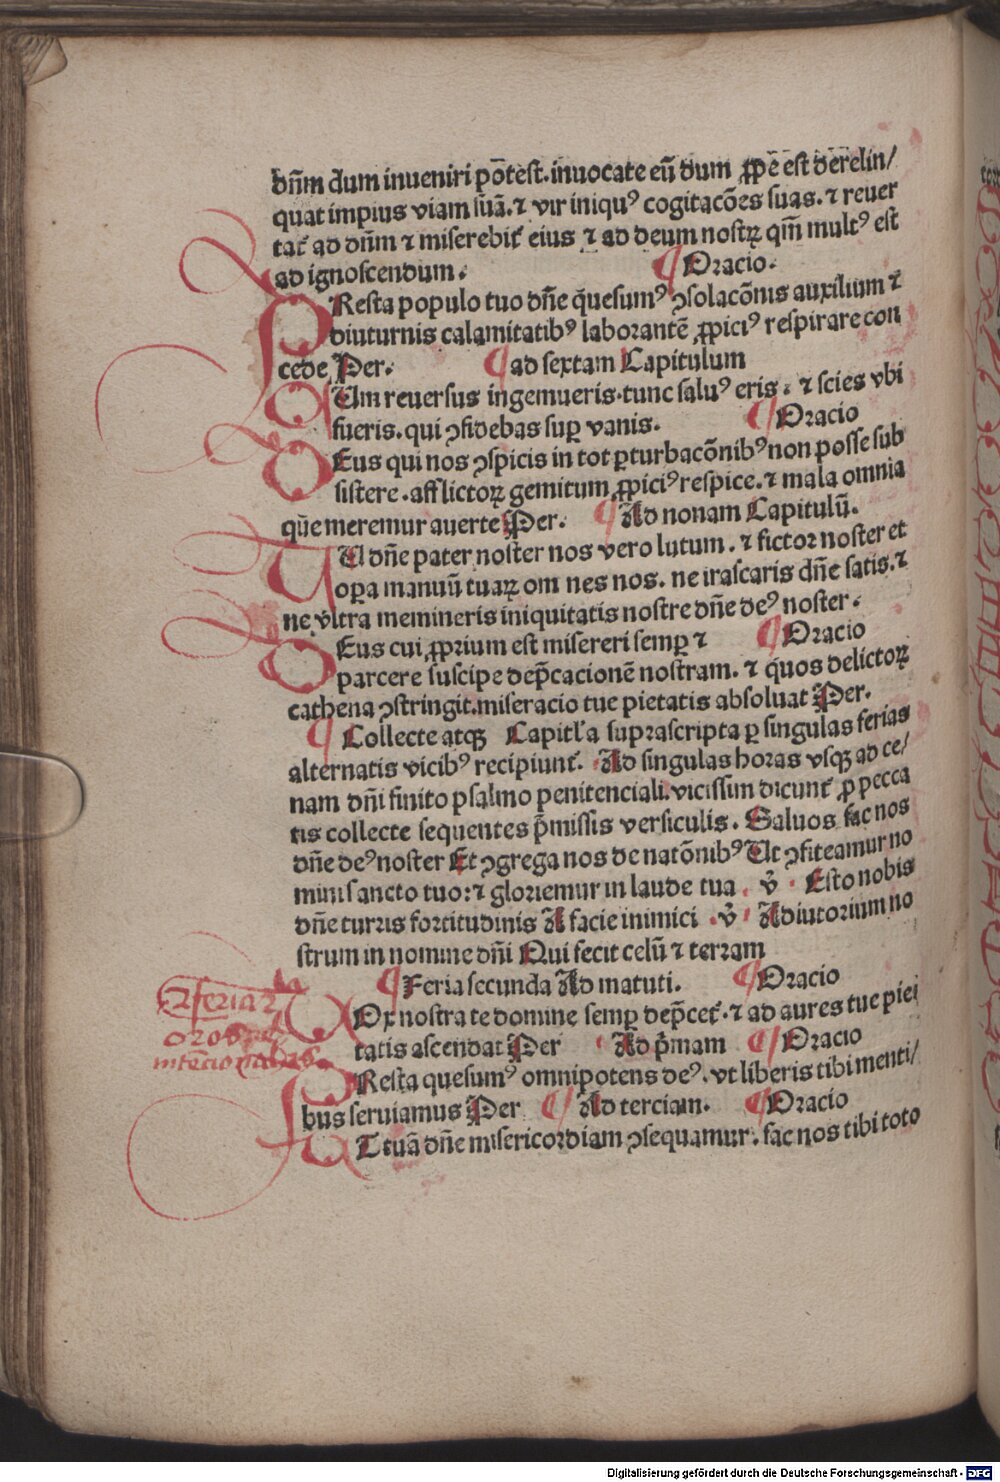 dn̄m dum inueniri põtest. inuocate eū dum ꝓpe est derelin/
quat impius viam suā. ⁊ vir iniquꝰ cogitacões suas. ⁊ reuer
tat̄ ad dn̄m ⁊ miserebit̄ eius ⁊ ad deum nostꝝ qm̄ multꝰ est
ad ignoscendum. ¶ Oracio.
PResta populo tuo dn̄e q̄sumꝰ ꝯsolacõnis auxilium ⁊
diuturnis calamitatibꝰ laborantē ꝓpiciꝰ respirare con
cede Per. ¶ ad sextam Capitulum
CUm reuersus ingemueris. tunc saluꝰ eris. ⁊ scies vbi
fueris. qui ꝯfidebas suꝑ vanis. ¶ Oracio
DEus qui nos ꝯspicis in tot ꝑturbacõnibꝰ non posse sub
sistere. afflictoꝝ gemitum ꝓpiciꝰ respice. ⁊ mala omnia
que meremur auerte Per. ¶ Ad nonam Capitulū.
TU dn̄e pater noster nos vero lutum. ⁊ fictor noster et
oꝑa manuū tuaꝝ om nes nos. ne irascaris dn̄e satis. ⁊
ne vltra memineris iniquitatis nostre dn̄e deꝰ noster.
DEus cui ꝓprium est misereri semꝑ ⁊ ¶ Oracio
parcere suscipe dep̄cacionē nostram. ⁊ quos delictoꝝ
cathena ꝯstringit. miseracio tue pietatis absoluat Per.
¶ Collecte atqꝫ Capitl'a suprascripta ꝑ singulas ferias
alternatis vicibꝰ recipiunt̄. Ad singulas horas vsqꝫ ad ce/
nam dn̄i finito psalmo penitenciali. vicissim dicunt̄ ꝓ pecca
tis collecte sequentes p̄missis versiculis. Saluos fac nos
dn̄e deꝰ noster Et ꝯgrega nos de natõnibꝰ Ut ꝯfiteamur no
mini sancto tuo: ⁊ gloriemur in laude tua. v̄ Esto nobis
dn̄e turris fortitudinis A facie inimici. v̄ Adiutorium no
strum in nomine dn̄i Qui fecit celū ⁊ terram
¶ Feria secunda Ad matuti. ¶ Oracio
VOx nostra te domine semꝑ dep̄cet̄. ⁊ ad aures tue piei
tatis ascendat Per Ad p̄mam ¶ Oracio
PResta quesumꝰ omnipotens deꝰ. vt liberis tibi menti/
bus seruiamus Per ¶ Ad terciam. ¶ Oracio
UT tuā dn̄e misericordiam ꝯsequamur. fac nos tibi toto
Digitalisierung gefördert durch die Deutsche Forschungsgemeinschaft - DFG